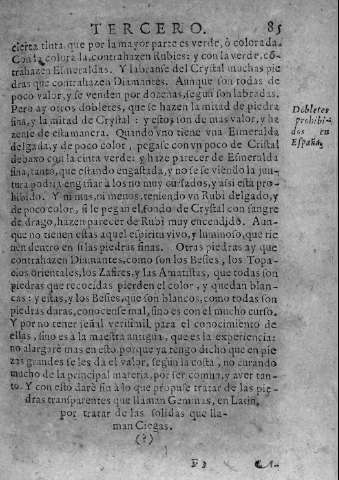 TERCERO. 85
cierta tinta que por la mayor parte es verde, ò colorada.
Con la colora la contrahazen Rubies: y con la verde, cō-
trahazen Esmeraldas. Y labranse del Crystal muchas pie
dras que contrahazen Diamantes. Aunque son todas de
poco valor, y se venden por dozenas, segun son labradas.
Pero ay otros dobletes, que se hazen la mitad de piedra
fina, y la mitad de Crystal: y estos son de mas valor, y ha
zense de esta manera. Quando vno tiene vna Esmeralda
delgada, y de poco color, pegase con vn poco de Cristal
debaxo con la tinta verde: y haze parecer de Esmeralda
fina, tanto, que estando engastada, y no se le viendo la jun-
tura podria engañar à los no muy cursados, y assi està pro-
hibido. Y ni mas, ni menos, teniendo vn Rubi delgado, y
de poco color, si le pegan el fondo de Crystal con sangre
de drago, hazen parecer de Rubi muy encendido. Aun-
que no tienen estas aquel espiritu vivo, y luminoso, que tie
nen dentro en sí las piedras finas. Otras piedras ay que
contrahazen Diamantes, como son los Besies, los Topa-
cios orientales, los Zafires, y las Amatistas, que todas son
piedras que recocidas pierden el color, y quedan blan-
cas: y estas, y los Besies, que son blancos, como todas son
piedras duras, conocense mal, sino es con el mucho curso.
Y por no tener señal verisimil, para el conocimiento de
ellas, sino es a la maestra antigua, que es la experiencia:
no alargarè mas en esto, porque ya tengo dicho que en pie
zas grandes se les da el valor, segun la costa, no curando
mucho de la principal materia, por ser comun, y aver tan-
to. Y con esto darè fin à lo que propuse tratar de las pie-
dras transparentes que llaman Gemmas, en Latin,
por tratar de las solidas que lla-
man Ciegas.
(?)
Dobletes
prohibi-
dos en
España.
F 3